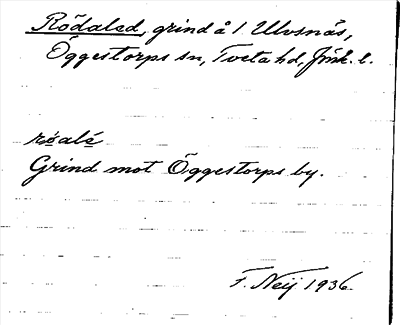 Rödaled, grind å 1 Ulvsnäs,
Öggestorps sn, Tveta hd, Jönk. l.
Grind mot Öggestorps by.
F. Neij 1936.